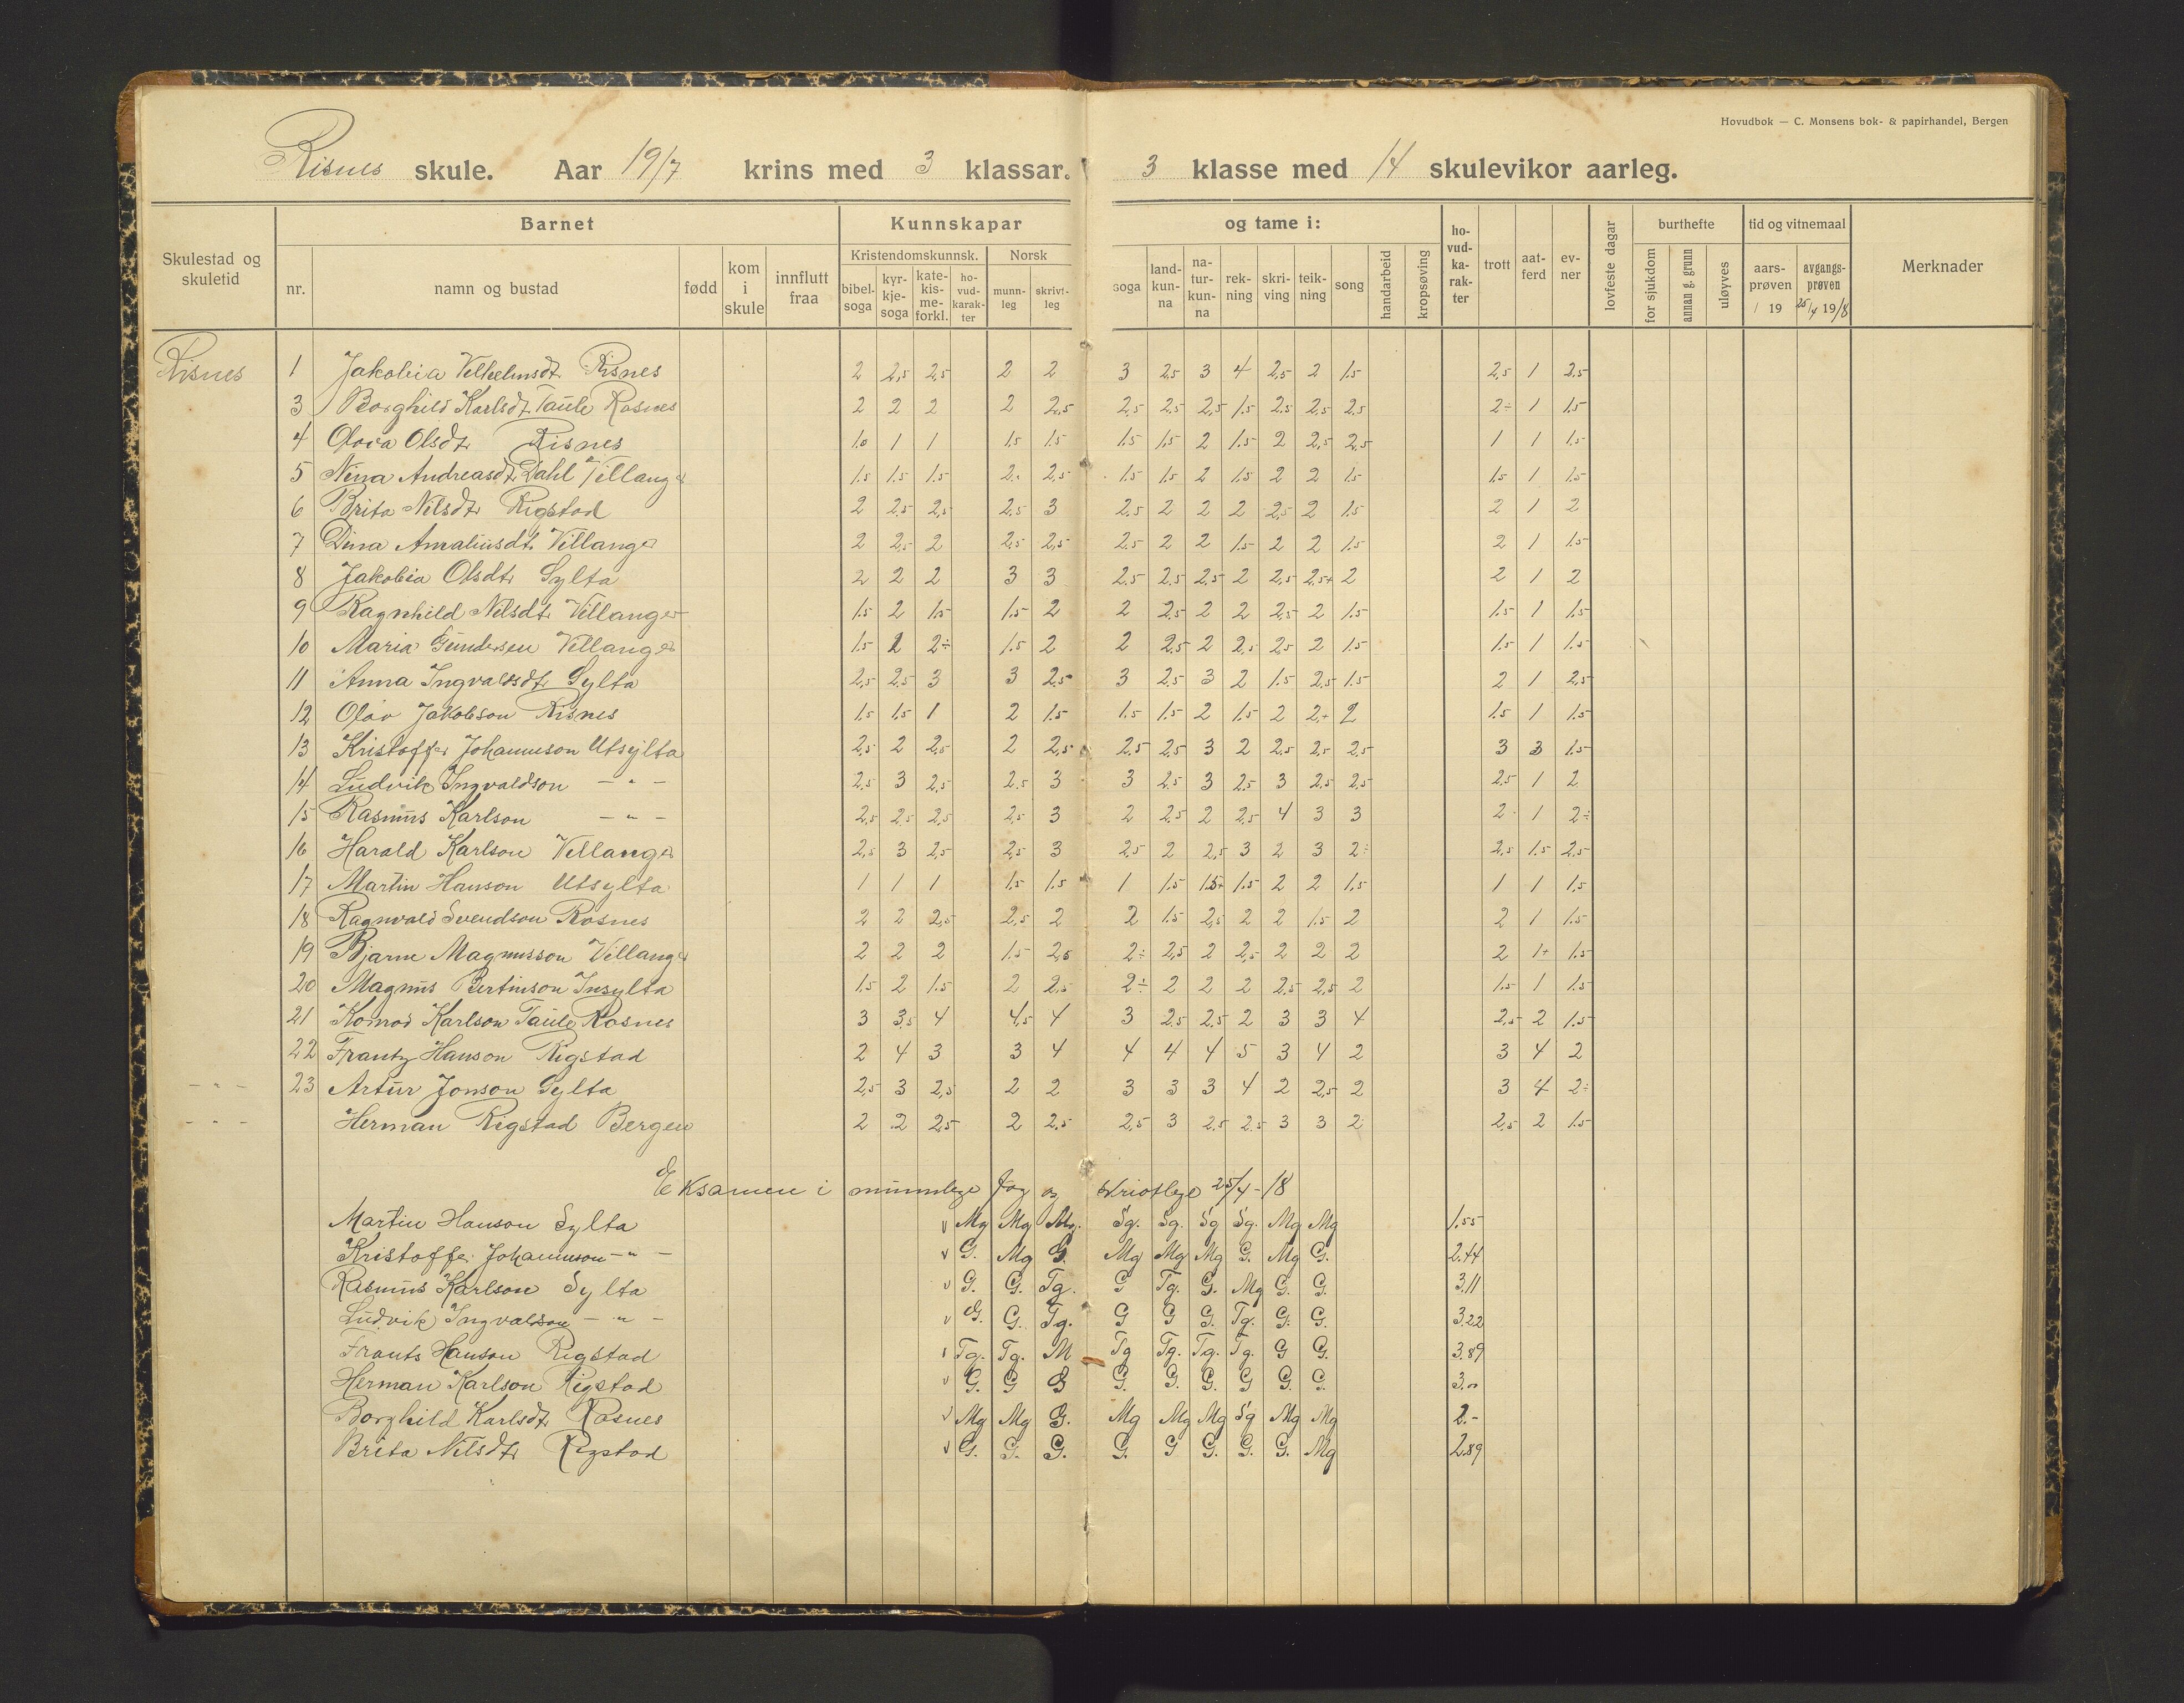 Hovudbok — C. Monsens bok- & papirhandel, Bergen
Risnes skule. Aar 19/7 krins med 3 klassar. 3 klasse med 14 skulevikor aarleg.
Skulestad og skuletid
Barnet
nr. namn og bustad fødd kom i skule innflutt fraa
Kunnskapar og tame i:
Kristendomskunnsk. Norsk
bibel-soga kyr-kje-soga kate-kis-me-forkl. ho-vud-karak-ter munn-leg skrivt-leg
soga land-kun-na na-tur-kun-na rek-ning skri-ving teik-ning song handarbeid kropsøving
ho-vud-ka-rak-ter trott aat-ferd ev-ner lovfeste dagar
burthefte
for sjukdom annan g. grunn uløyves
tid og vitnemaal
aars-prøven / 19 avgangs-prøven 25/4 19/8
Merknader
Risnes 1 Jakobia Vilhelmsdt. Risnes 2 2,5 2,5 2 2 3 2,5 3 4 2,5 2 1.5 2,5 1 2,5
3 Borghild Karlsdt. Taule Rosnes 2 2 2 2 2,5 2,5 2,5 2,5 1.5 2.5 2,5 2,5 2÷ 1 1.5
4 Olova Olsdtr Risnes 1.0 1 1 1.5 1.5 1.5 1.5 2 1.5 2 2,5 2,5 1 1 1.5
5 Nina Andreasdtr Dahl Villanger 1.5 1.5 1.5 2. 2,5 1.5 1.5 2 1.5 2 2 1.5 1.5 1 1.5
6 Brita Nilsdtr Rigstad 2 2,5 2,5 2,5 3 2,5 2 2 2 2,5 2 1.5 2 1 2
7 Dina Amaliusdt. Villanger 2 2,5 2 2,5 2,5 2,5 2 2 1.5 2 2 1.5 2 1 1.5
8 Jakobia Olsdtr Sylta 2 2 2 3 3 2,5 2,5 2,5 2 2,5 2,5+ 2 2 1 2
9 Ragnhild Nilsdtr Villanger 1.5 2 1.5 1.5 2 2 2,5 2 2 2,5 2 1.5 1.5 1 1.5
10 Maria Gundersen Villanger 1.5 2 2÷ 1.5 2 2 2,5 2 2,5 2,5 2 1.5 1.5 1 1.5
11 Anna Ingvaldsdtr Sylta 2,5 2,5 3 3 2,5 3 2,5 3 2 1.5 2,5 1.5 2 1 2,5
12 Olav Jakobson Risnes 1.5 1.5 1 2 1.5 1.5 1.5 2 1.5 2 2+ 2 1.5 1 1.5
13 Kristoffer Johannson Utsylta 2,5 2 2,5 2 2,5 2,5 2,5 3 2 2,5 2,5 2,5 3 3 1.5
14 Ludvik Ingvaldson — " — 2,5 3 2,5 2,5 3 3 2,5 3 2,5 3 2,5 2,5 2,5 1 2
15 Rasmus Karlson — " — 2,5 2,5 2,5 2,5 3 2 2,5 2 2,5 4 3 3 2 1 2÷
16 Harald Karlson Villanger 2,5 3 2,5 2,5 3 2,5 2 2,5 3 2 3 2÷ 2,5 1.5 2,5
17 Martin Hanson Utsylta 1 1 1 1.5 1.5 1 1.5 1.5+ 1.5 2 2 1.5 1 1 1.5
18 Ragnvald Svendson Rosnes 2 2 2,5 2,5 2 2 1.5 2,5 2 2 1.5 2 2 1 1.5
19 Bjarne Magnusson Villanger 2 2 2 1.5 2,5 2÷ 2,5 2 2,5 2 2 2 2 1+ 1.5
20 Magnus Bertinson Insylta 1.5 2 1.5 2 2,5 2÷ 2 2 2 2,5 2,5 2 1.5 1 1.5
21 Konrad Karlson Taule Rosnes 3 3,5 4 4,5 4 3 2,5 2,5 2 3 3 4 2,5 2 1.5
22 Frantz Hanson Rigstad 2 4 3 3 4 4 4 4 5 3 4 2 3 4 2
— " — 23 Artur Jonson Sylta 2,5 3 2,5 2 2 3 3 3 4 2 2,5 2 3 4 2÷
— " — Herman Rigstad Bergen 2 2 2,5 2 2,5 2,5 3 2,5 2,5 3 3 2 2,5 2 1.5
Eksamen i munnlege fag og skriftlege 25/4 - 18
Martin Hanson Sylta v Mg Mg Mg. Sg. Sg. Sg Sg. Mg Mg 1.55
Kristoffer Johannson — " — v G. Mg G. Mg Mg Mg G. Mg G. 2.44
Rasmus Karlson Sylta v G. G. Tg. G Tg. G. Mg G. G. 3.11
Ludvik Ingvaldson — " — v G. G. Tg. G G G. Tg. G. G. 3.22
Frants Hanson Rigstad v Tg. Tg. M Tg Tg. Tg. Tg. G G. 3.89
Herman Karlson Rigstad v G. G G G. G. G. G G. G. 3.00
Borghild Karlsdtr Rosnes v Mg Mg G. Mg Mg Mg Sg Mg Mg 2.-
Brita Nilsdtr Rigstad v G. G. G. G. G G. G. G. Mg 2.89